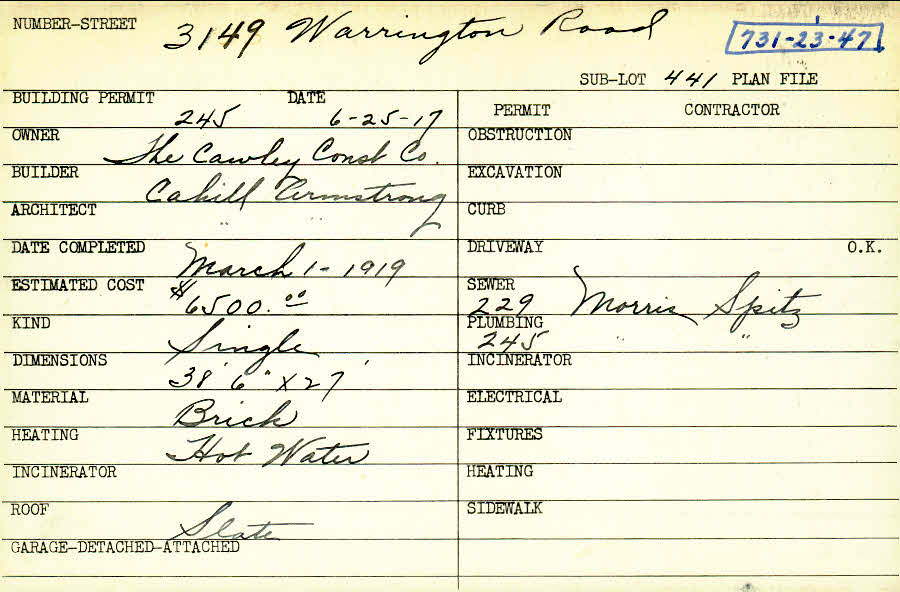 NUMBER-STREET 3149 Warrington Road 731-23-47
SUB-LOT 441 PLAN FILE
BUILDING PERMIT 245 DATE 6-25-17
OWNER The Cawley Const Co.
BUILDER Cahill Armstrong
ARCHITECT " "
DATE COMPLETED March 1-1919
ESTIMATED COST $6500.00
KIND Single
DIMENSIONS 38' 6" X 27'
MATERIAL Brick
HEATING Hot Water
INCINERATOR
ROOF Slate
GARAGE-DETACHED-ATTACHED
PERMIT CONTRACTOR
OBSTRUCTION
EXCAVATION
CURB
DRIVEWAY O.K.
SEWER 229 Morris Spitz
PLUMBING 245 " "
INCINERATOR
ELECTRICAL
FIXTURES
HEATING
SIDEWALK